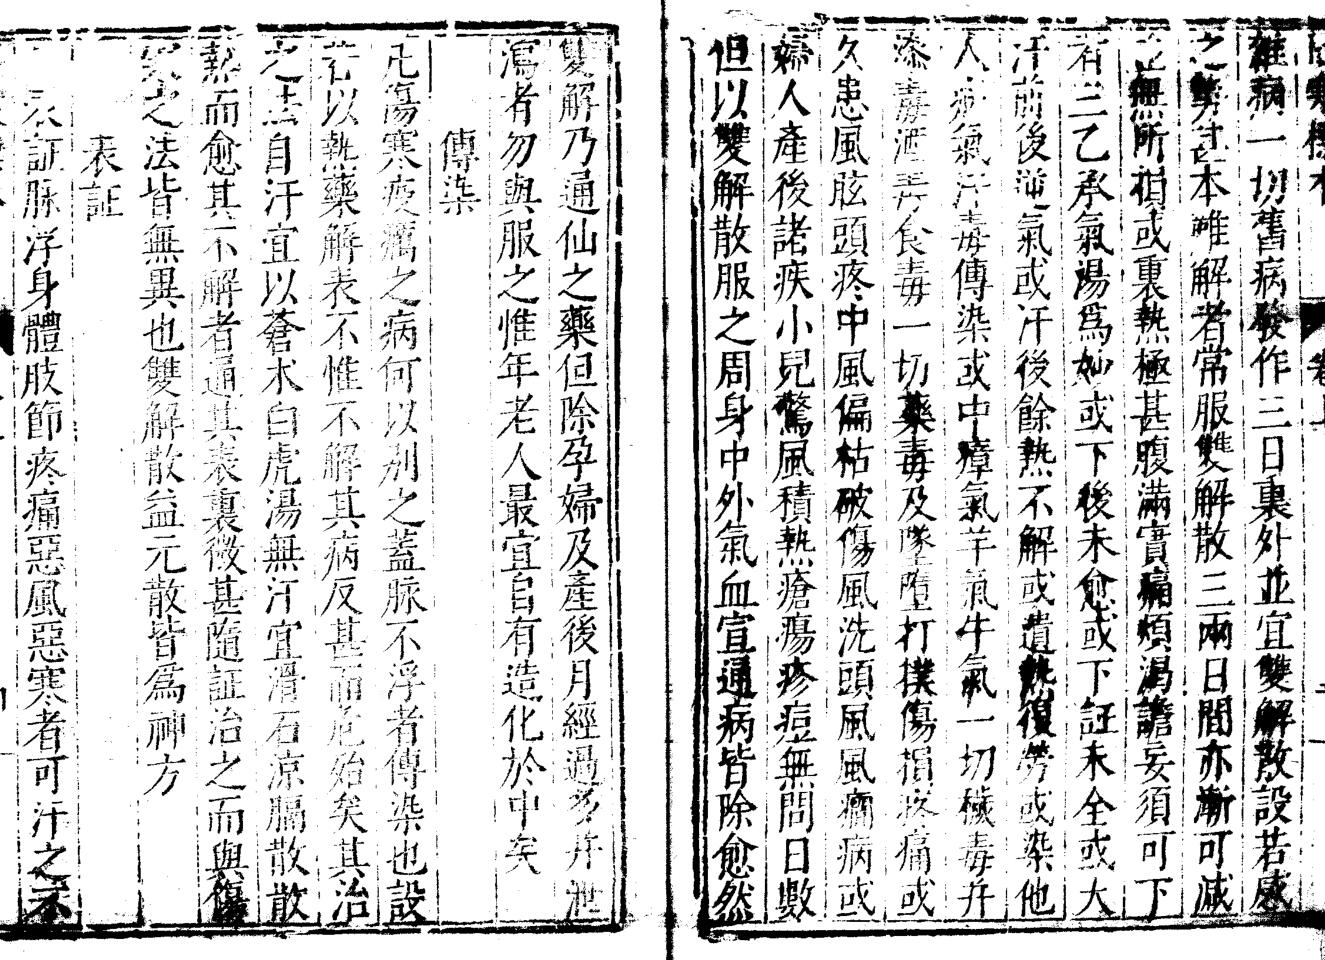 傷寒標本 卷上
雜病一切舊病發作三日裏外並宜雙解散設若感
之勢甚本難解者常服雙解散三兩日間亦漸可減
並無所損或裏熱極甚腹滿實痛煩渴譫妄須可下
者三乙承氣湯爲妙或下後未愈或下証未全或大
汗前後逆氣或汗後餘熱不解或遺熱復勞或染他
人病氣汗毒傳染或中瘴氣羊氣牛氣一切穢毒并
漆毒酒毒食毒一切藥毒及墜墮打撲傷損疼痛或
久患風眩頭疼中風偏枯破傷風洗頭風風癇病或
婦人產後諸疾小兒驚風積熱瘡瘍疹痘無問日數
但以雙解散服之周身中外氣血宣通病皆除愈然
雙解乃通仙之藥但除孕婦及產後月經過多并泄
瀉者勿與服之惟年老人最宜自有造化於中矣
傳染
凡傷寒疫癘之病何以別之蓋脉不浮者傳染也設
若以熱藥解表不惟不解其病反甚而危殆矣其治
之法自汗宜以蒼朮白虎湯無汗宜滑石凉膈散散
熱而愈其不解者通其表裏微甚隨証治之而與傷
寒之法皆無異也雙解散益元散皆爲神方
表証
表証脉浮身體肢節疼痛惡風惡寒者可汗之不